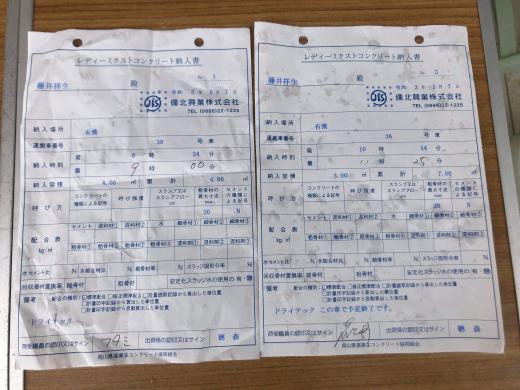 レディーミクストコンクリート納入書
No. 1
藤井祥生 殿
令和 3年 5月 7日
JIS
備北興業株式会社
TEL (0866)22-1225
納入場所 有漢
運搬車番号 38 号車
納入時刻 発 8時 34分
着 9時 00分
納入容積 4.00 m³ 累計 4.00 m³
呼び方 コンクリートの種類による記号 呼び強度 スランプ又はスランプフロー cm 粗骨材の最大寸法 mm セメントの種類による記号
20
配合表 kg/m³
セメント 混和材① 混和材② 水 細骨材① 細骨材② 細骨材③
粗骨材① 粗骨材② 粗骨材③ 混和剤① 混和剤② 混和剤③
水セメント比 % 水結合材比 % 細骨材率 % スラッジ固形分率 %
回収骨材置換率 細骨材 粗骨材 安定化スラッジ水の使用の有・無
備考 配合の種別:□標準配合 □修正標準配合 □計量読取記録から算出した単位量
□計量印字記録から算出した単位量
□計量印字記録から自動算出した単位量
ドライテック
荷受職員の認印又はサイン 出荷係の認印又はサイン 徳森
岡山県高梁生コンクリート協同組合
レディーミクストコンクリート納入書
No. 2
藤井祥生 殿
令和 3年 5月 7日
JIS
備北興業株式会社
TEL (0866)22-1225
納入場所 有漢
運搬車番号 36 号車
納入時刻 発 10時 54分
着 11時 25分
納入容積 3.00 m³ 累計 7.00 m³
呼び方 コンクリートの種類による記号 呼び強度 スランプ又はスランプフロー cm 粗骨材の最大寸法 mm セメントの種類による記号
20 N
配合表 kg/m³
セメント 混和材① 混和材② 水 細骨材① 細骨材② 細骨材③
粗骨材① 粗骨材② 粗骨材③ 混和剤① 混和剤② 混和剤③
水セメント比 % 水結合材比 % 細骨材率 % スラッジ固形分率 %
回収骨材置換率 細骨材 粗骨材 安定化スラッジ水の使用の有・無
備考 配合の種別:□標準配合 □修正標準配合 □計量読取記録から算出した単位量
□計量印字記録から算出した単位量
□計量印字記録から自動算出した単位量
ドライテック この車で予定終了です。
荷受職員の認印又はサイン 出荷係の認印又はサイン 徳森
岡山県高梁生コンクリート協同組合